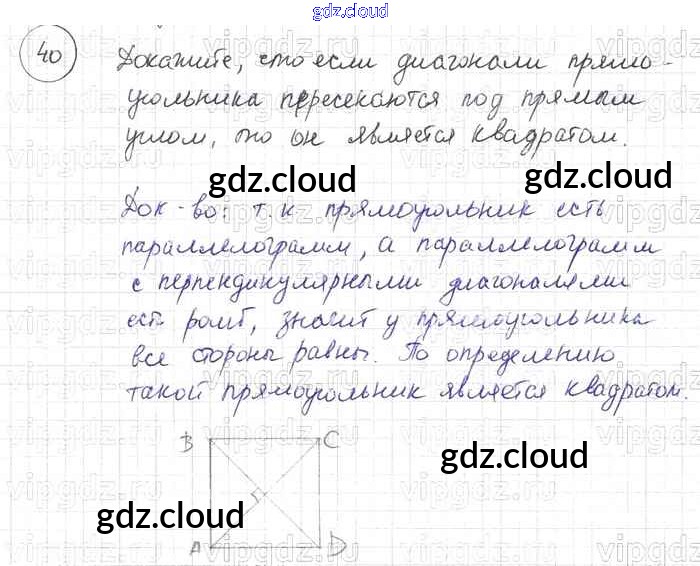 gdz.cloud
40
Докажите, что если диагонали прямо-
угольника пересекаются под прямым
углом, то он является квадратом.
gdz.cloud
gdz.cloud
Док-во: т.к прямоугольник есть
параллелограмм, а параллелограмм
с перпендикулярными диагоналями
есть ромб, значит у прямоугольника
все стороны равны. По определению
такой прямоугольник является квадратом.
B C
gdz.cloud
gdz.cloud
A D